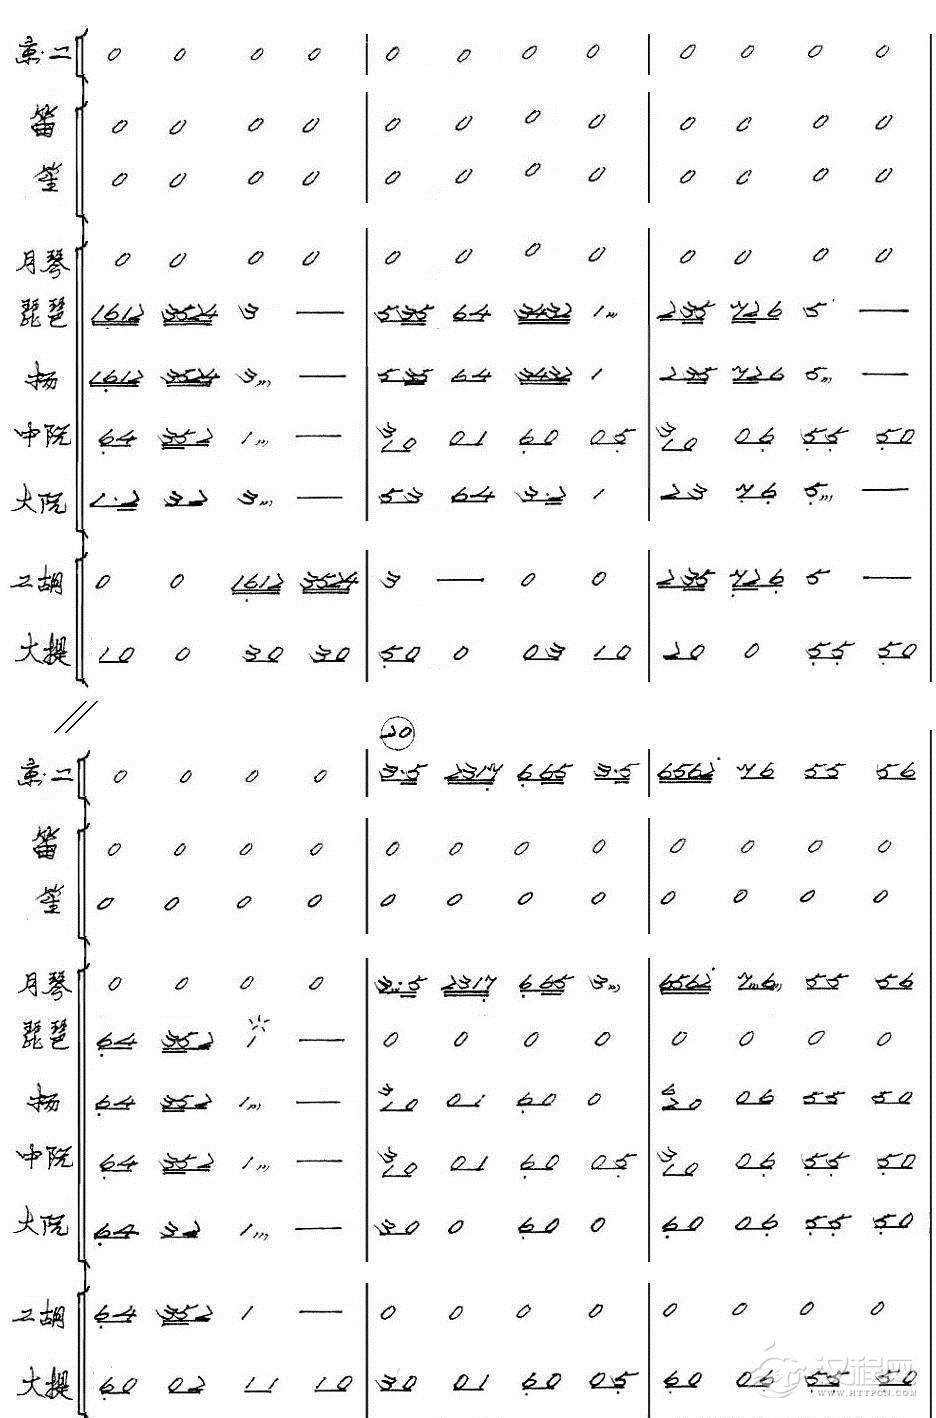 京·二 0 0 0 0 | 0 0 0 0 | 0 0 0 0
笛 0 0 0 0 | 0 0 0 0 | 0 0 0 0
笙 0 0 0 0 | 0 0 0 0 | 0 0 0 0
月琴 0 0 0 0 | 0 0 0 0 | 0 0 0 0
琵琶 1612 3524 3 — | 535 64 3432 1,,, | 235 726 5 —
扬 1612 3524 3,,, — | 535 64 3432 1 | 235 726 5,,, —
中阮 64 352 1,,, — | 3 10 01 60 05 | 3 10 06 55 50
大阮 1·2 32 3,,, — | 53 64 3·2 1 | 23 76 5,,, —
二胡 0 0 1612 3524 | 3 — 0 0 | 235 726 5 —
大提 10 0 30 30 | 50 0 03 10 | 20 0 55 50
20
京·二 0 0 0 0 | 3·5 2317 665 3·5 | 6562 76 55 56
笛 0 0 0 0 | 0 0 0 0 | 0 0 0 0
笙 0 0 0 0 | 0 0 0 0 | 0 0 0 0
月琴 0 0 0 0 | 3·5 2317 665 3,,, | 6562 7,,,6,,, 55 56
琵琶 64 352 1 — | 0 0 0 0 | 0 0 0 0
扬 64 352 1,,, — | 3 10 01 60 0 | 6 20 06 55 50
中阮 64 352 1,,, — | 3 10 01 60 05 | 3 10 06 55 50
大阮 64 32 1,,, — | 30 0 60 0 | 60 06 55 50
二胡 64 352 1 — | 0 0 0 0 | 0 0 0 0
大提 60 02 11 10 | 30 01 60 05 | 60 06 55 50
汉程网
WWW.HTTPCN.COM